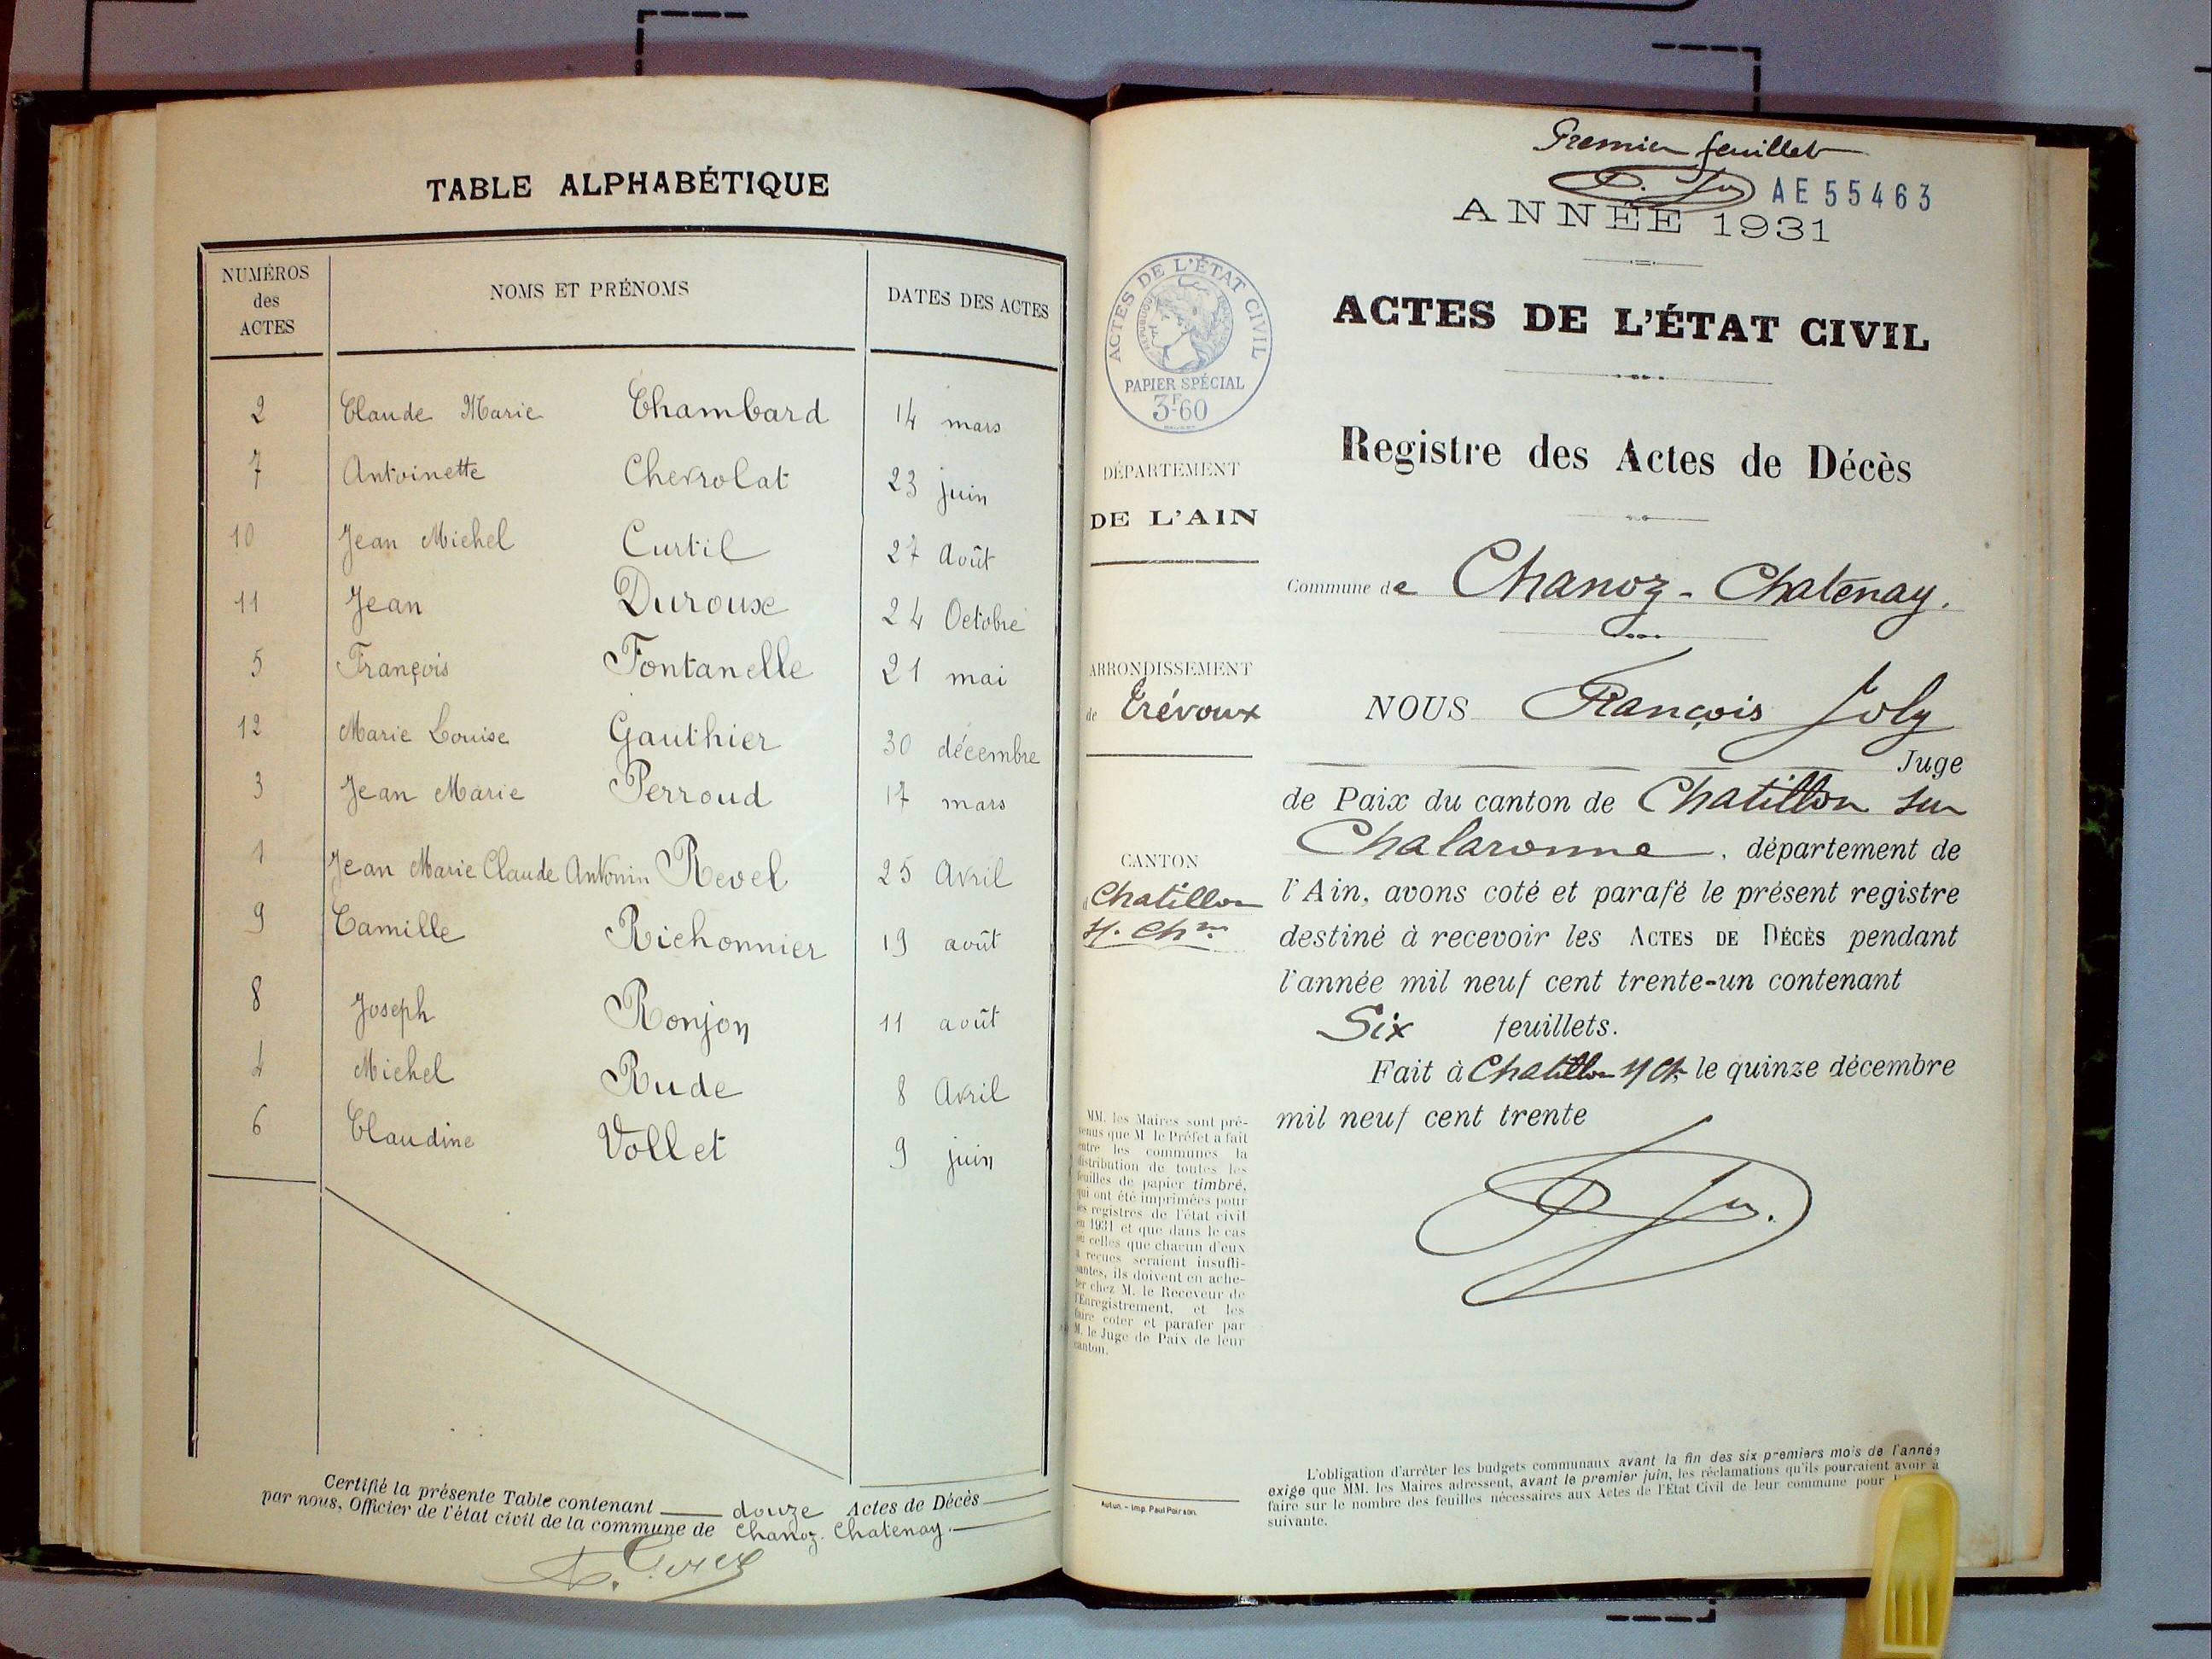 TABLE ALPHABÉTIQUE
NUMÉROS des ACTES NOMS ET PRÉNOMS DATES DES ACTES
2 Claude Marie Chambard 14 mars
7 Antoinette Chevrolat 23 juin
10 Jean Michel Curtil 27 Août
11 Jean Duroux 24 Octobre
5 François Fontanelle 21 mai
12 Marie Louise Gauthier 30 décembre
3 Jean Marie Perroud 17 mars
1 Jean Marie Claude Antonin Revel 25 Avril
9 Camille Richonnier 19 août
8 Joseph Ronjon 11 août
4 Michel Rude 8 Avril
6 Claudine Vollet 9 juin
Certifié la présente Table contenant douze Actes de Décès
par nous, Officier de l'état civil de la commune de Chanoz-Chatenay.
Premier feuillet
AE 55463
ANNÉE 1931
ACTES DE L'ÉTAT CIVIL
RÉPUBLIQUE FRANÇAISE
PAPIER SPÉCIAL
3F60
ACTES DE L'ÉTAT CIVIL
Registre des Actes de Décès
DÉPARTEMENT
DE L'AIN
Commune de Chanoz-Chatenay.
ARRONDISSEMENT
de Trévoux
NOUS François Joly
Juge
de Paix du canton de Chatillon sur
Chalaronne, département de
CANTON
Chatillon
s/. Chne
l'Ain, avons coté et parafé le présent registre
destiné à recevoir les ACTES DE DÉCÈS pendant
l'année mil neuf cent trente-un contenant
Six feuillets.
Fait à Chatillon s/Ch. le quinze décembre
mil neuf cent trente
MM. les Maires sont pré-
venus que M. le Préfet a fait
entre les communes la
distribution de toutes les
feuilles de papier timbré,
qui ont été imprimées pour
les registres de l'état civil
en 1931 et que dans le cas
où celles que chacun d'eux
a reçues seraient insuffi-
santes, ils doivent en ache-
ter chez M. le Receveur de
l'Enregistrement, et les
faire coter et parafer par
M. le Juge de Paix de leur
canton.
Autun. - Imp. Paul Poirson.
L'obligation d'arrêter les budgets communaux avant la fin des six premiers mois de l'année
exige que MM. les Maires adressent, avant le premier juin, les réclamations qu'ils pourraient avoir à
faire sur le nombre des feuilles nécessaires aux Actes de l'Etat Civil de leur commune pour
suivante.